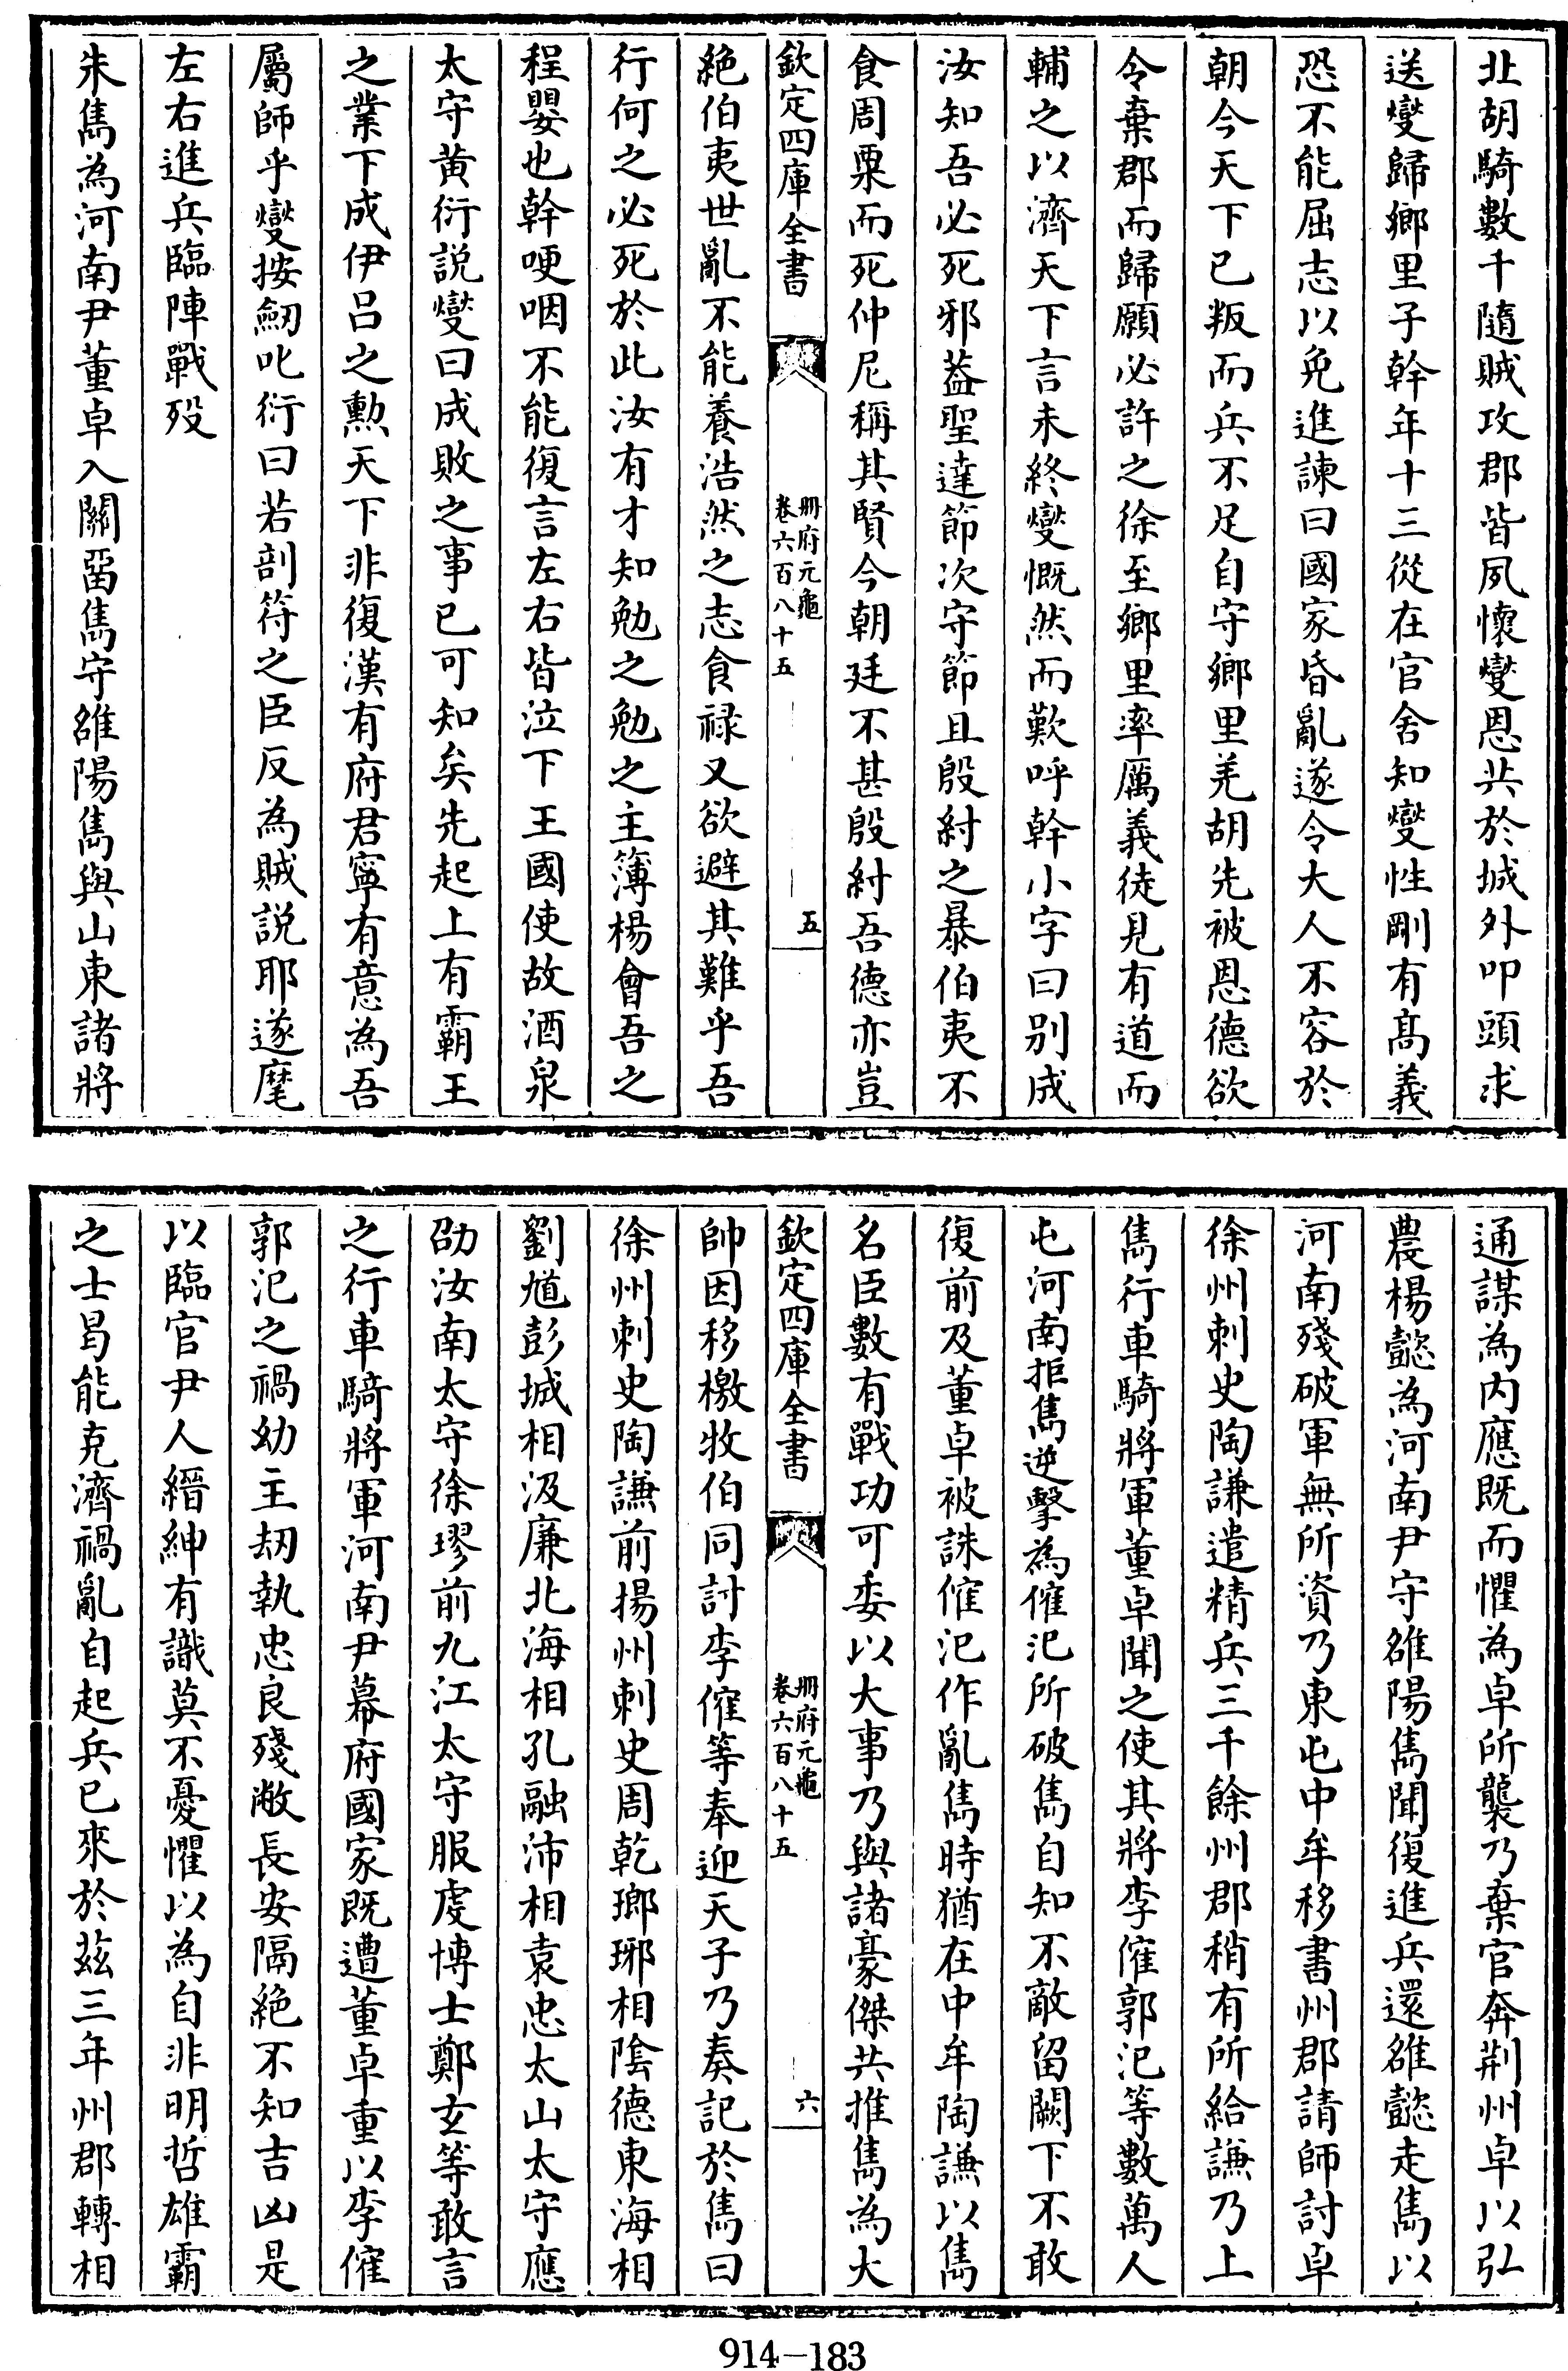 北胡騎數千隨賊攻郡皆夙懷燮恩共於城外叩頭求
送燮歸鄉里子幹年十三從在官舍知燮性剛有髙義
恐不能屈志以免進諫曰國家昏亂遂令大人不容於
朝今天下已叛而兵不足自守鄉里羌胡先被恩德欲
令棄郡而歸願必許之徐至鄉里率厲義徒見有道而
輔之以濟天下言未終燮慨然而歎呼幹小字曰别成
汝知吾必死邪葢聖達節次守節且殷紂之暴伯夷不
食周粟而死仲尼稱其賢今朝廷不甚殷紂吾德亦豈
欽定四庫全書
冊府元龜
卷六百八十五
五
絶伯夷世亂不能養浩然之志食禄又欲避其難乎吾
行何之必死於此汝有才知勉之勉之主簿楊會吾之
程嬰也幹哽咽不能復言左右皆泣下王國使故酒泉
太守黄衍説燮曰成敗之事已可知矣先起上有霸王
之業下成伊吕之勲天下非復漢有府君寧有意為吾
屬師乎燮按劒叱衍曰若剖符之臣反為賊説耶遂麾
左右進兵臨陣戰歿
朱雋為河南尹董卓入關留雋守雒陽雋與山東諸將
通謀為内應既而懼為卓所襲乃棄官奔荆州卓以弘
農楊懿為河南尹守雒陽雋聞復進兵還雒懿走雋以
河南殘破軍無所資乃東屯中牟移書州郡請師討卓
徐州刺史陶謙遣精兵三千餘州郡稍有所給謙乃上
雋行車騎將軍董卓聞之使其將李傕郭汜等數萬人
屯河南拒雋逆擊為傕汜所破雋自知不敵留闕下不敢
復前及董卓被誅傕汜作亂雋時猶在中牟陶謙以雋
名臣數有戰功可委以大事乃與諸豪傑共推雋為大
欽定四庫全書
冊府元龜
卷六百八十五
六
帥因移檄牧伯同討李傕等奉迎天子乃奏記於雋曰
徐州刺史陶謙前揚州刺史周乾瑯琊相陰德東海相
劉馗彭城相汲廉北海相孔融沛相袁忠太山太守應
劭汝南太守徐璆前九江太守服虔博士鄭玄等敢言
之行車騎將軍河南尹幕府國家既遭董卓重以李傕
郭汜之禍幼主刼執忠良殘敝長安隔絶不知吉凶是
以臨官尹人縉紳有識莫不憂懼以為自非明哲雄霸
之士曷能克濟禍亂自起兵已來於兹三年州郡轉相
914-183